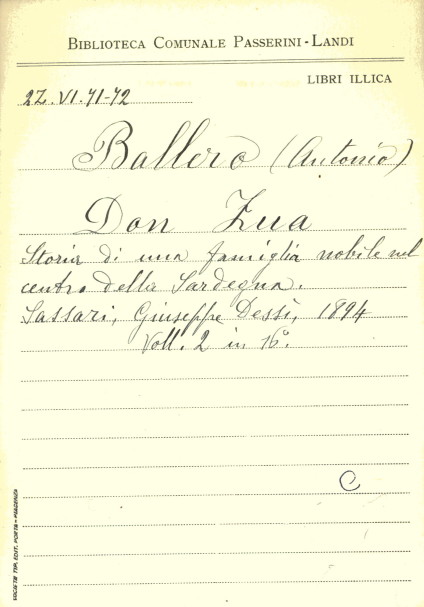 BIBLIOTECA COMUNALE PASSERINI-LANDI
LIBRI ILLICA
2Z.VI.71-72
Ballero (Antonio)
Don Zua
Storia di una famiglia nobile nel
centro della Sardegna.
Sassari, Giuseppe Dessì, 1894
Voll. 2 in 16°.
C
SOCIETÀ TIP. EDIT. PORTA - PIACENZA